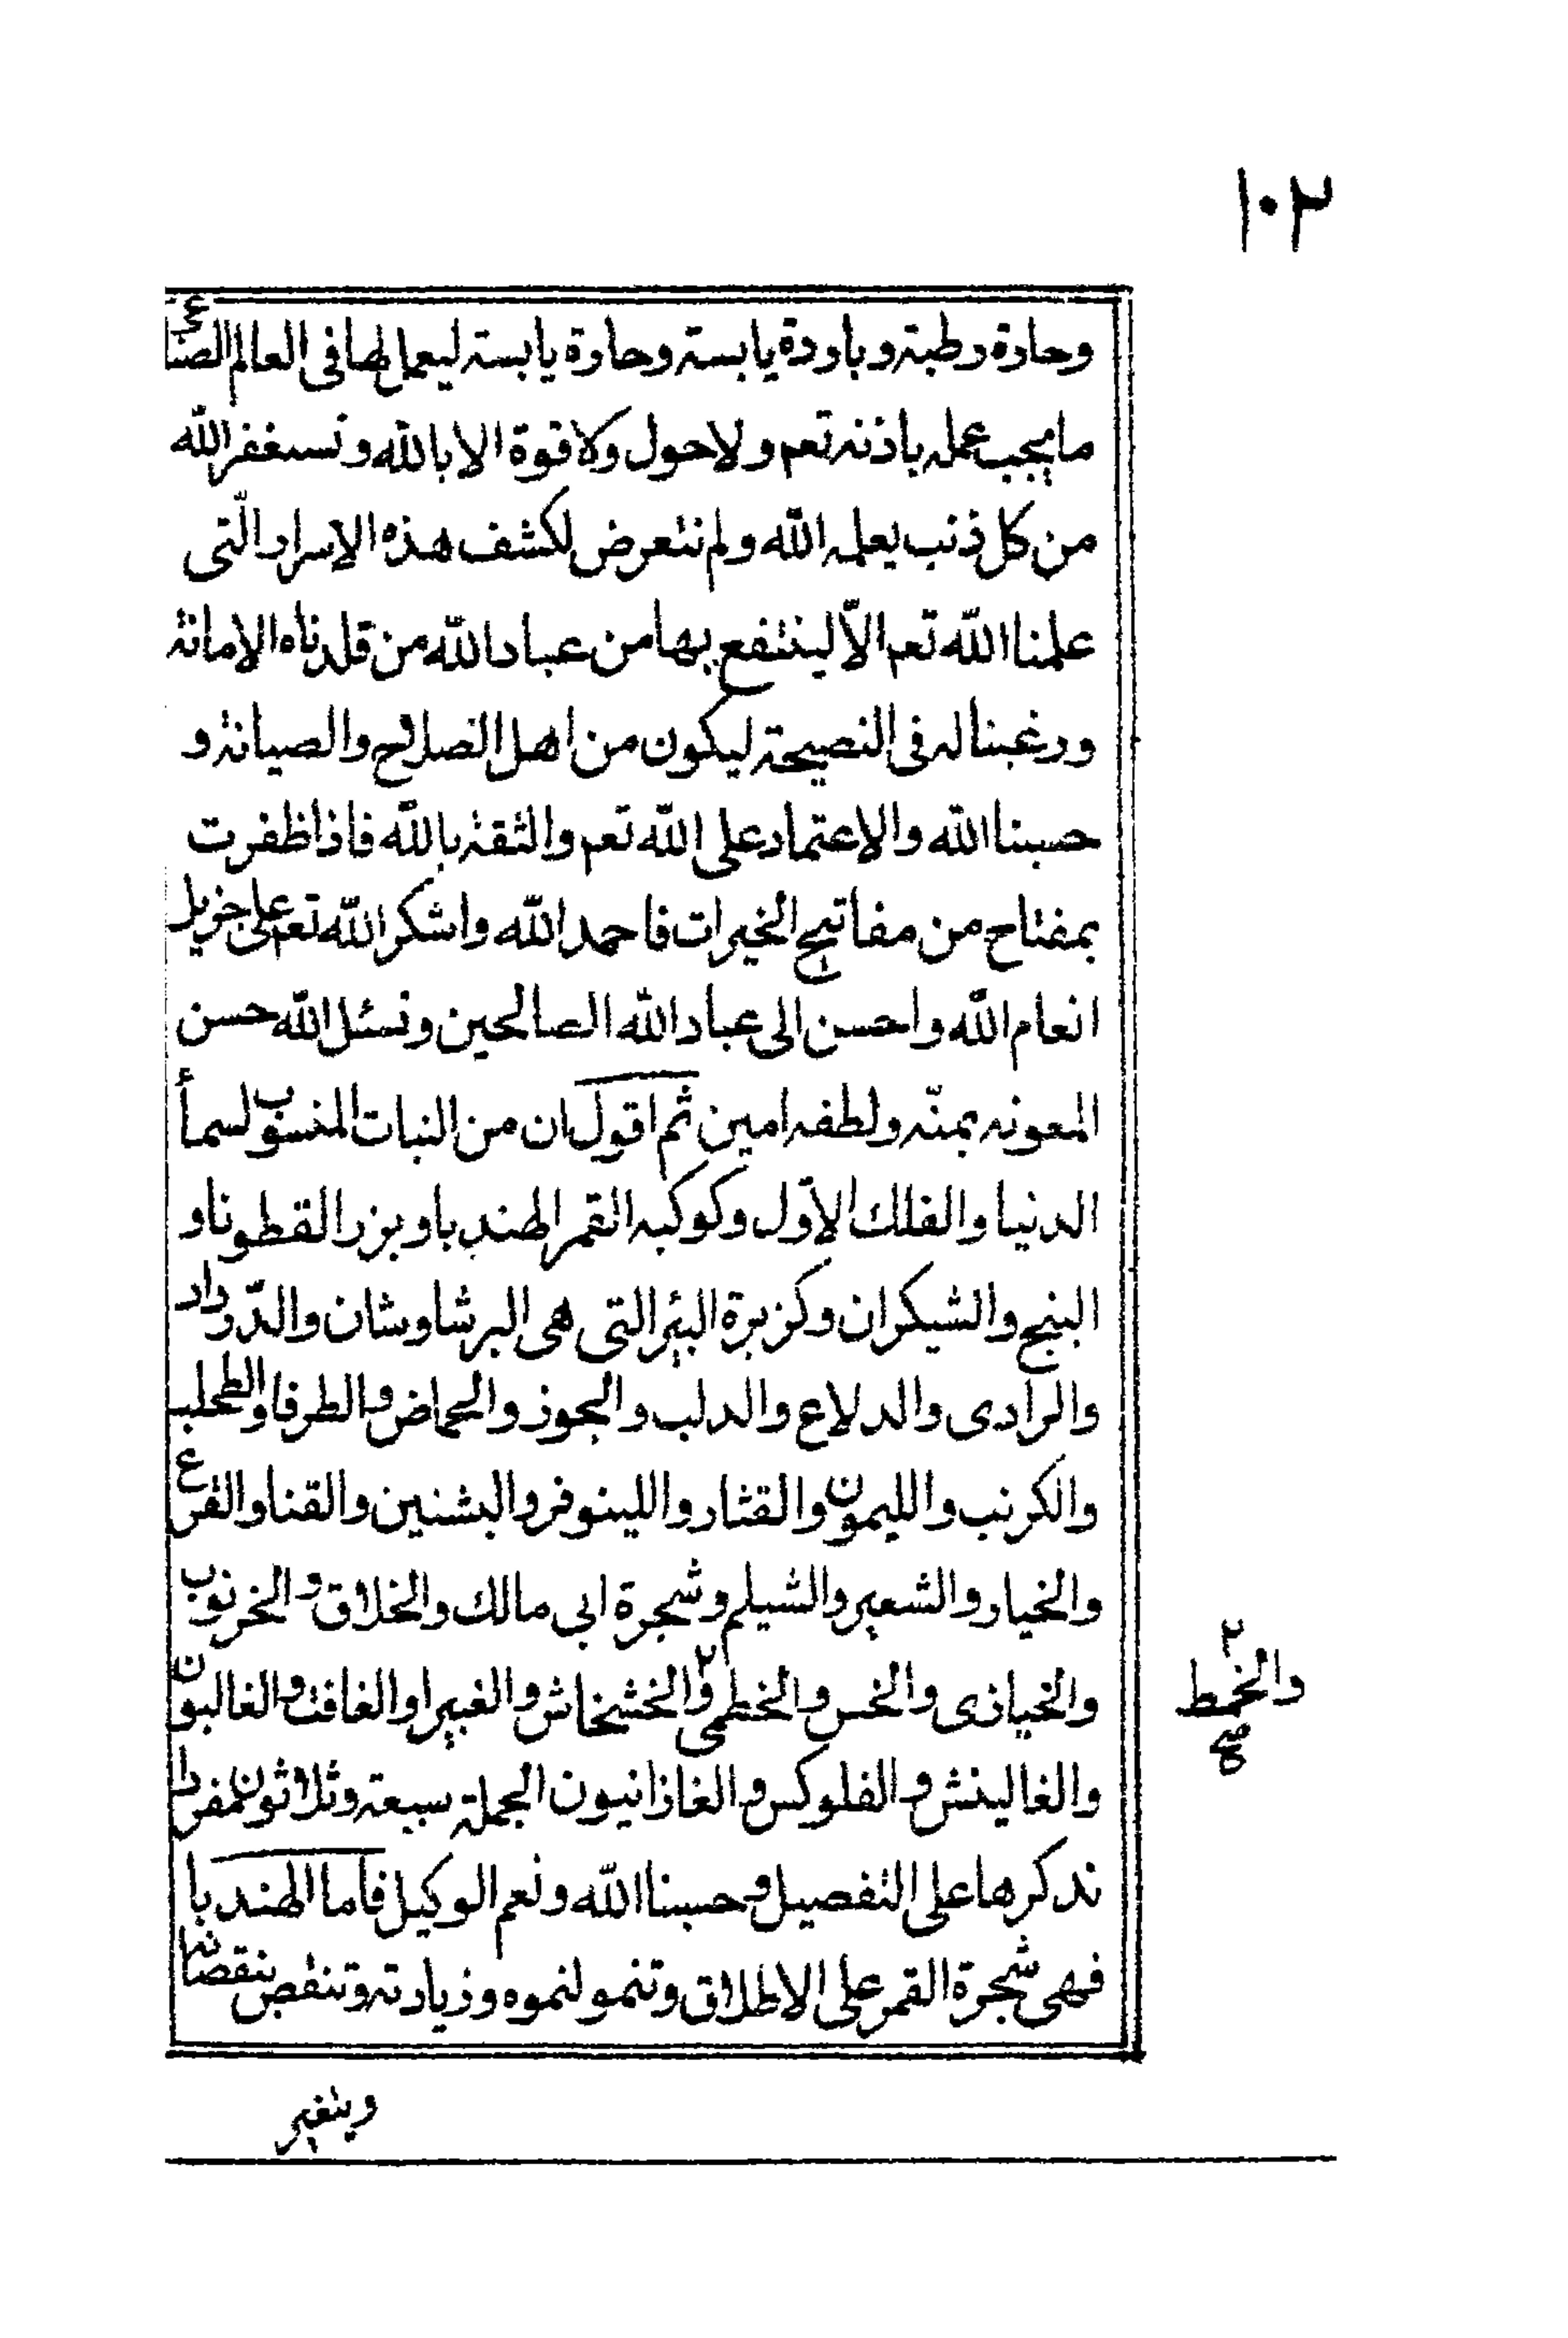 ١٠٢
وحارة رطبة وباردة يابسة وحارة يابسة ليعمل لها فى العالم الصناعى
ما يجب عمله باذنه تعم ولا حول ولا قوة الا بالله ونستغفر الله
من كل ذنب يعلمه الله ولم نتعرض لكشف هذه الاسرار الّتى
علمنا الله تعم الاّ لينتفع بها من عباد الله من قلدناه الامانة
ورغبنا له فى النصيحة ليكون من اهل الصلاح والصيانة و
حسبنا الله والاعتماد على الله تعم والثقة بالله فاذا ظفرت
بمفتاح من مفاتيح الخيرات فاحمد الله واشكر الله تعم على جزيل
انعام الله واحسن الى عباد الله الصالحين ونسئل الله حسن
المعونه بمنّه ولطفه امين ثم اقول ان من النبات المنسوب لسمأ
الدنيا والفلك الاوّل وكوكبه القمر الهندبا وبزر القطونا و
البنج والشيكران وكزبرة البئر التى هى البرشاوشان والدّردار
والرادى والدلاع والدلب والجوز والحماض والطرفا والطحلب
والكرنب والليمون والقثار واللينوفر والبشنين والقنا والقرع
والخيار والشعير والشيلم وشجرة ابى مالك والخلاق والخرنوب
والخيازى والخس والخطمى ٢ والخشخاش والغبيرا والغافت والغاليون
والغالينش والفلوكس والغازانيون الجملة سبعة وثلاثون مفردا
ندكرها على التفصيل وحسبنا الله ونعم الوكيل فاما الهندبا
فهى شجرة القمر على الاطلاق وتنمو لنموه وزيادته وتنقص بنقصانه
٢
والخمط
صح
ويتغير